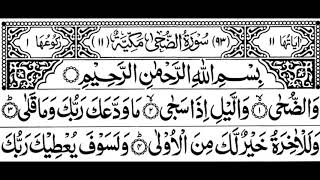 اٰیَاتُهَا ١١ (٩٣) سُوْرَةُ الضُّحٰى مَكِّیَّةٌ (١١) رُكُوْعُهَا ١
بِسْمِ اللّٰهِ الرَّحْمٰنِ الرَّحِیْمِ
وَالضُّحٰى ١ وَالَّیْلِ اِذَا سَجٰى ٢ مَا وَدَّعَكَ رَبُّكَ وَمَا قَلٰى ٣
وَلَلْاٰخِرَةُ خَیْرٌ لَّكَ مِنَ الْاُوْلٰى ٤ وَلَسَوْفَ یُعْطِیْكَ رَبُّكَ